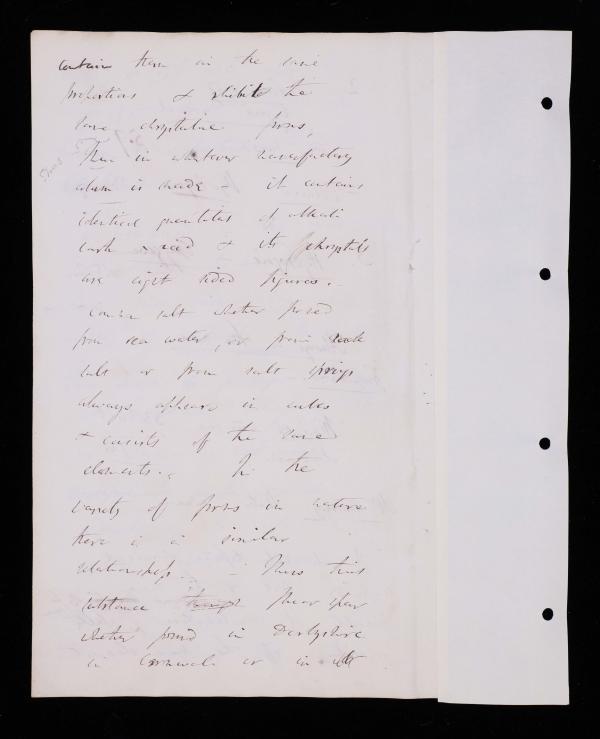 contain them in the same
proportions & exhibit the
same crystalline forms,
Thus in whatever manufactory
alum is made - it contains
identical quantities of alkali
earth & acid & its chrystals
are eight sided figures. -
Common salt whether formed
from sea water, or from rock
salt or from salt springs
always appears in cubes
& consists of the same
elements. - In the
variety of forms in nature
there is a similar
relationship. - Thus this
substance Fluor spar
whether found in Derbyshire
in Cornwall or in